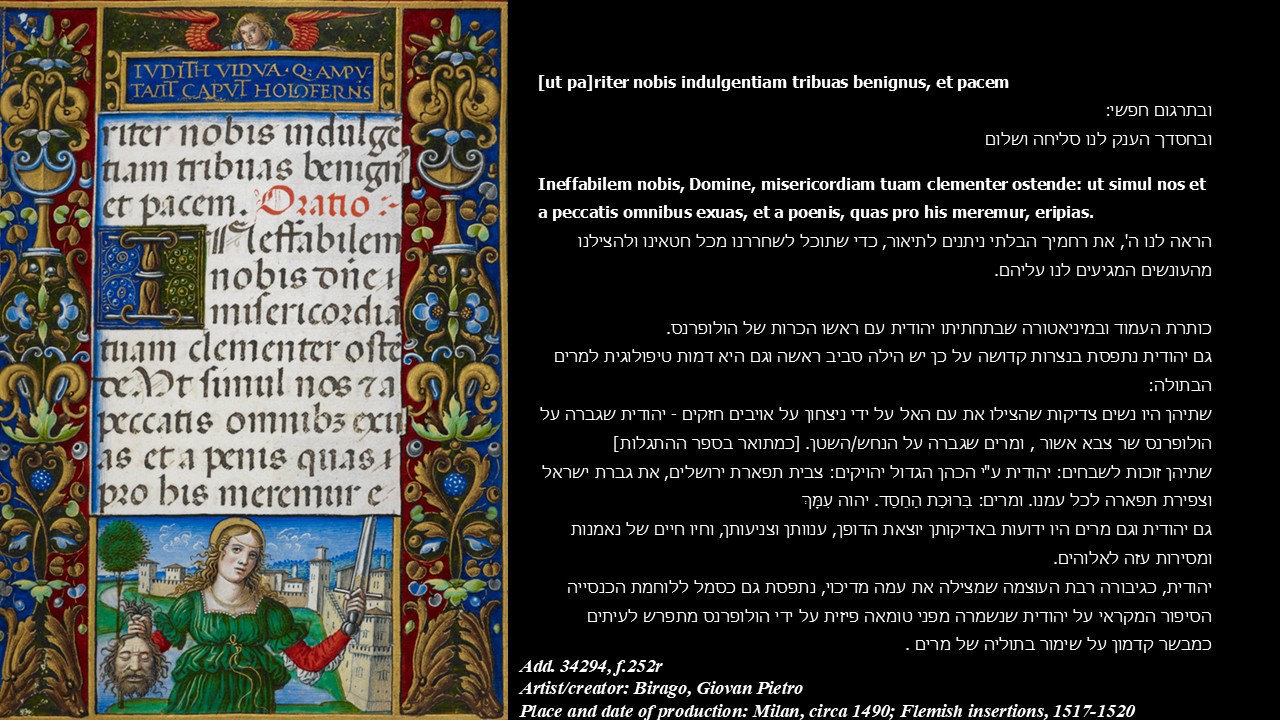 IVDITH VIDVA·Q: AMPV·
TAVIT CAPVT HOLOFERNS
riter nobis indulgē
tiam tribuas benigñ
et pacem. Oratio :~
effabilem
nobis dñe
misericordiā
tuam clementer oste
de. Vt simul nos ⁊ a
peccatis omnibꝫ exu
as et a penis quas
pro his meremur e
[ut pa]riter nobis indulgentiam tribuas benignus, et pacem
ובתרגום חפשי:
ובחסדך הענק לנו סליחה ושלום
Ineffabilem nobis, Domine, misericordiam tuam clementer ostende: ut simul nos et
a peccatis omnibus exuas, et a poenis, quas pro his meremur, eripias.
הראה לנו ה', את רחמיך הבלתי ניתנים לתיאור, כדי שתוכל לשחררנו מכל חטאינו ולהצילנו
מהעונשים המגיעים לנו עליהם.
כותרת העמוד ובמיניאטורה שבתחתיתו יהודית עם ראשו הכרות של הולופרנס.
גם יהודית נתפסת בנצרות קדושה על כן יש הילה סביב ראשה וגם היא דמות טיפולוגית למרים
הבתולה:
שתיהן היו נשים צדיקות שהצילו את עם האל על ידי ניצחון על אויבים חזקים - יהודית שגברה על
הולופרנס שר צבא אשור , ומרים שגברה על הנחש/השטן. [כמתואר בספר ההתגלות]
שתיהן זוכות לשבחים: יהודית ע"י הכהן הגדול יהויקים: צבית תפארת ירושלים, את גברת ישראל
וצפירת תפארה לכל עמנו. ומרים: בְּרוּכַת הַחֶסֶד. יהוה עִמָּךְ
גם יהודית וגם מרים היו ידועות באדיקותן יוצאת הדופן, ענוותן וצניעותן, וחיו חיים של נאמנות
ומסירות עזה לאלוהים.
יהודית, כגיבורה רבת העוצמה שמצילה את עמה מדיכוי, נתפסת גם כסמל ללוחמת הכנסייה
הסיפור המקראי על יהודית שנשמרה מפני טומאה פיזית על ידי הולופרנס מתפרש לעיתים
כמבשר קדמון על שימור בתוליה של מרים .
Add. 34294, f.252r
Artist/creator: Birago, Giovan Pietro
Place and date of production: Milan, circa 1490; Flemish insertions, 1517-1520